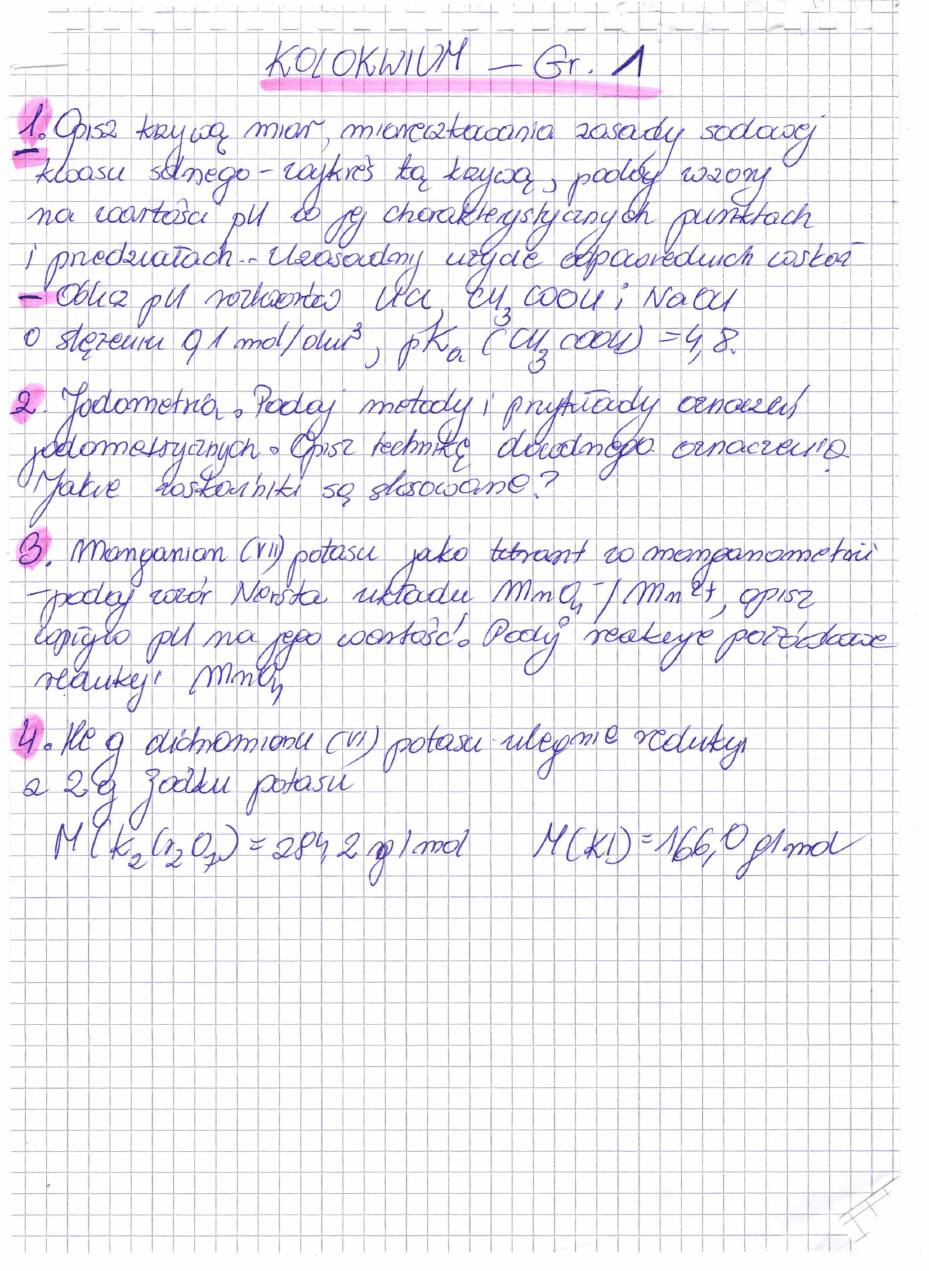 KOLOKWIUM – Gr. 1
1. Opisz krzywą miar, miareczkowania zasady sodowej
kwasu solnego - wykreś tą krzywą, podaj wzory
na wartości pH w jej charakterystycznych punktach
i przedziałach.. Uzasadnij użycie odpowiednich wskaź
– Oblicz pH roztworów HCl, CH3COOH i NaOH
o stężeniu 0,1 mol/dm³, pKa (CH3COOH) = 4,8.
2. Jodometria. Podaj metody i przykłady oznaczeń
jodometrycznych. Opisz technikę dowolnego oznaczenia.
Jakie wskaźniki są stosowane?
3. Manganian (VII) potasu jako titrant w manganometrii
- podaj wzór Nersta układu MnO4⁻/Mn²⁺, opisz
wpływ pH na jego wartość. Podaj reakcje połówkowe
redukcji MnO4
4. Ile g dichromianu (VI) potasu ulegnie redukcji
z 2 g jodku potasu
M(K2Cr2O7) = 284,2 g/mol M(KI) = 166,0 g/mol